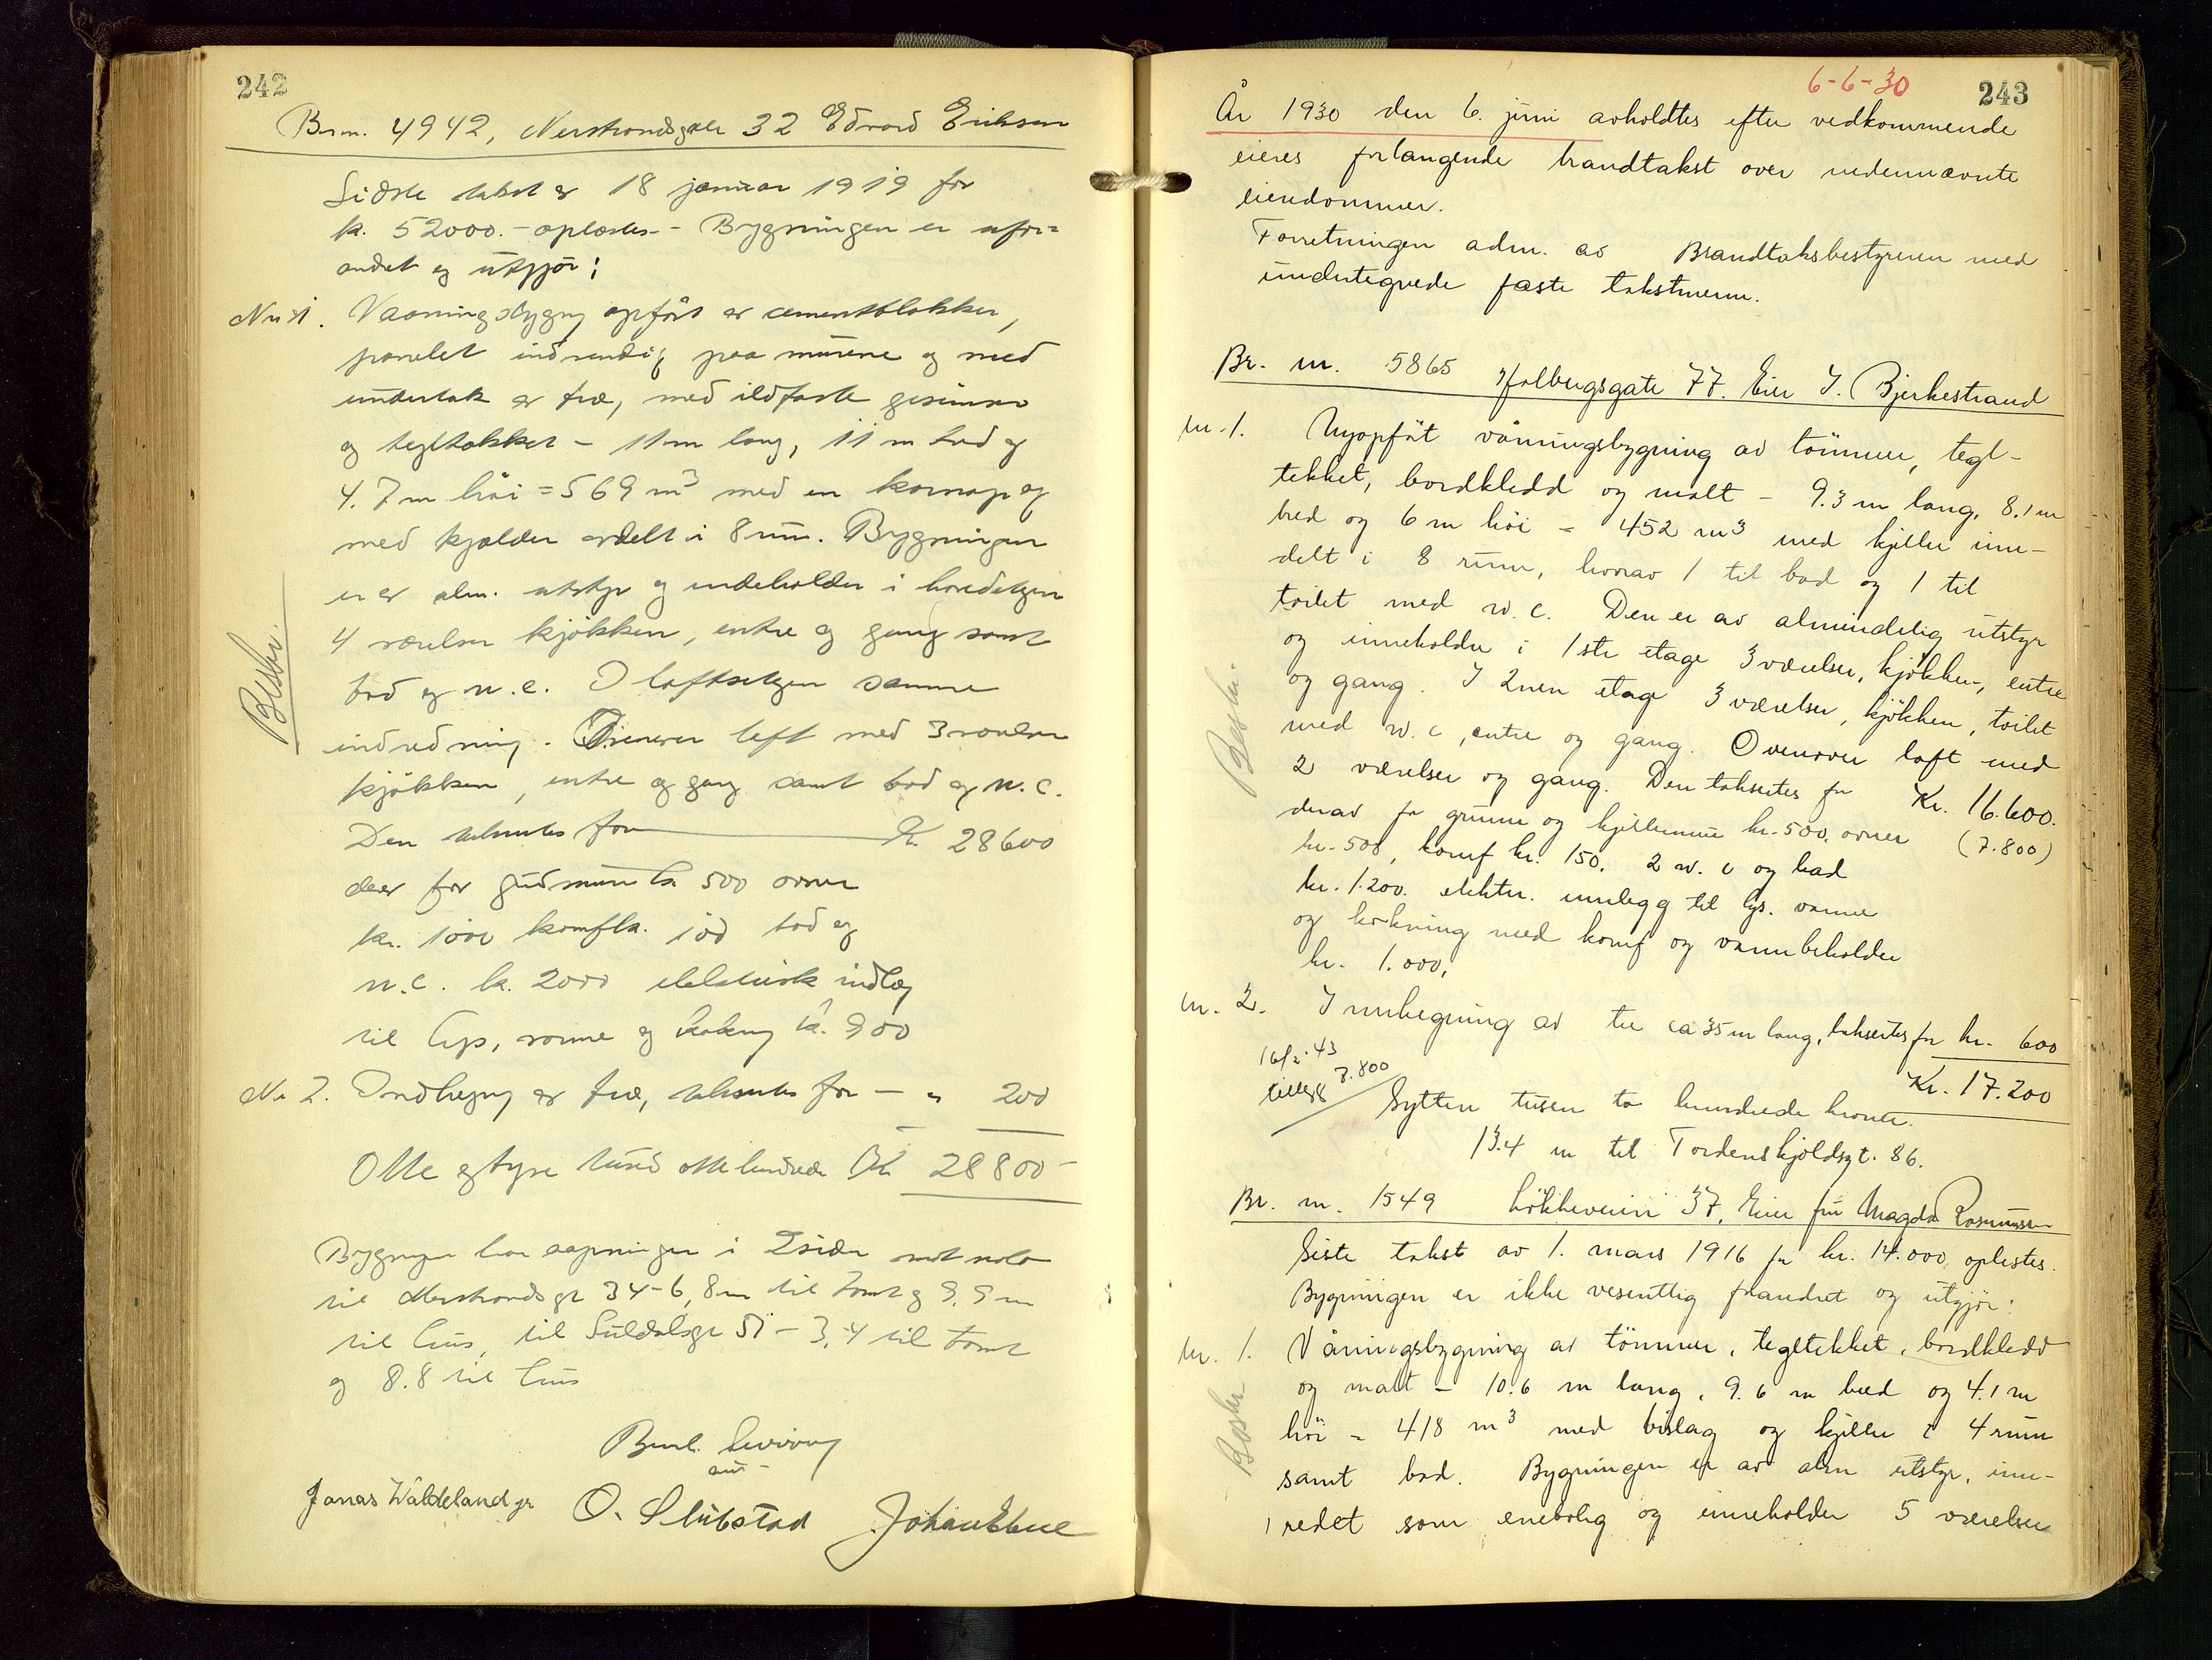 242
Br.nr. 4942, Nerstrandsgate 32 Edvard Eriksen
Sidste takst av 18 januar 1919 for
k. 52000.- oplæstes - Bygningen er ufor=
andret og utgjør:
No 1. Vaaningsbygn opført av cementblokker,
panelet indvendig paa murene og med
undertak av træ, med ildfaste gesimser
og tegltækket - 11 m lang, 11 m bred og
4.7 m høi = 569 m3 med en karnap og
med kjælder avdelt i 8 rum. Bygningen
er av alm. utstyr og indeholder i hovedetagen
4 værelser kjøkken, entre og gang samt
bad og w.c. I loftsetagen samme
indredning. Derover loft med 3 værelser
kjøkken, entre og gang samt bad og w.c.
Den takseres for Kr. 28600
derav for grundmure kr 500 ovner
kr. 1000 komf kr. 100 bad og
w.c. kr. 2000 elektrisk indlæg
til lys, varme og kokning kr. 900
Beskr.
No 2. Indhegn av træ, takseres for - " 200
Otte og tyve tusind otte hundrede Kr 28800 -
Bygningen har aapninger i 2 sider mot nabo
til Nerstrandsgt 34 - 6,8 m til tomt og 9.9 m
til hus, til Suldalsgt 51 - 3.4 til tomt
og 8.8 til hus
Jonas Waldeland jr O. Slubstad
243
6-6-30
År 1930 den 6. juni avholdtes efter vedkommende
eieres forlangende brandtakst over nedennævnte
eiendommer.
Forretningen adm. av Brandtakstbestyreren med
undertegnede faste takstmenn.
Br. nr. 5865 Holbergsgate 77. Eier J. Bjerkestrand
nr. 1. Nyopført våningsbygning av tømmer, tegl-
tekket, bordkledd og malt - 9.3 m lang, 8.1 m
bred og 6 m høi = 452 m3 med kjeller inn-
delt i 8 rum, hvorav 1 til bad og 1 til
toilet med w.c. Den er av almindelig utstyr
og inneholder i 1ste etage 3 værelser, kjøkken, entre
og gang. I 2nen etage 3 værelser, kjøkken, toilet
med w.c, entre og gang. Ovenover loft med
2 værelser og gang. Den takseres for Kr. 16.600.
derav for grunn og kjellermur kr. 500, ovner (7.800)
kr. 500, komf kr. 150, 2 w.c og bad
kr. 1.200. elektr. innlegg til lys, varme
og kokning med komf og vannbeholder
kr. 1.000,
Beskr.
nr. 2. Innhegning av tre ca 35 m lang, takseres for kr. 600
Kr. 17.200
16/2-43
tillegg 7.800
Sytten tusen to hundrede kroner.
13.4 m til Tordenskjoldsgt. 86.
Br. nr. 1549 Løkkeveien 37, Eier fru Magda Rasmussen
Siste takst av 1. mars 1916 for kr. 14.000, oplestes.
Bygningen er ikke vesentlig forandret og utgjør:
nr. 1. Våningsbygning av tømmer, tegltekket, bordkledd
og malt - 10.6 m lang, 9.6 m bred og 4.1 m
høi = 418 m3 med bislag og kjeller i 4 rum
samt bad. Bygningen er av alm utstyr, inn-
redet som enebolig og inneholder 5 værelser
Beskr